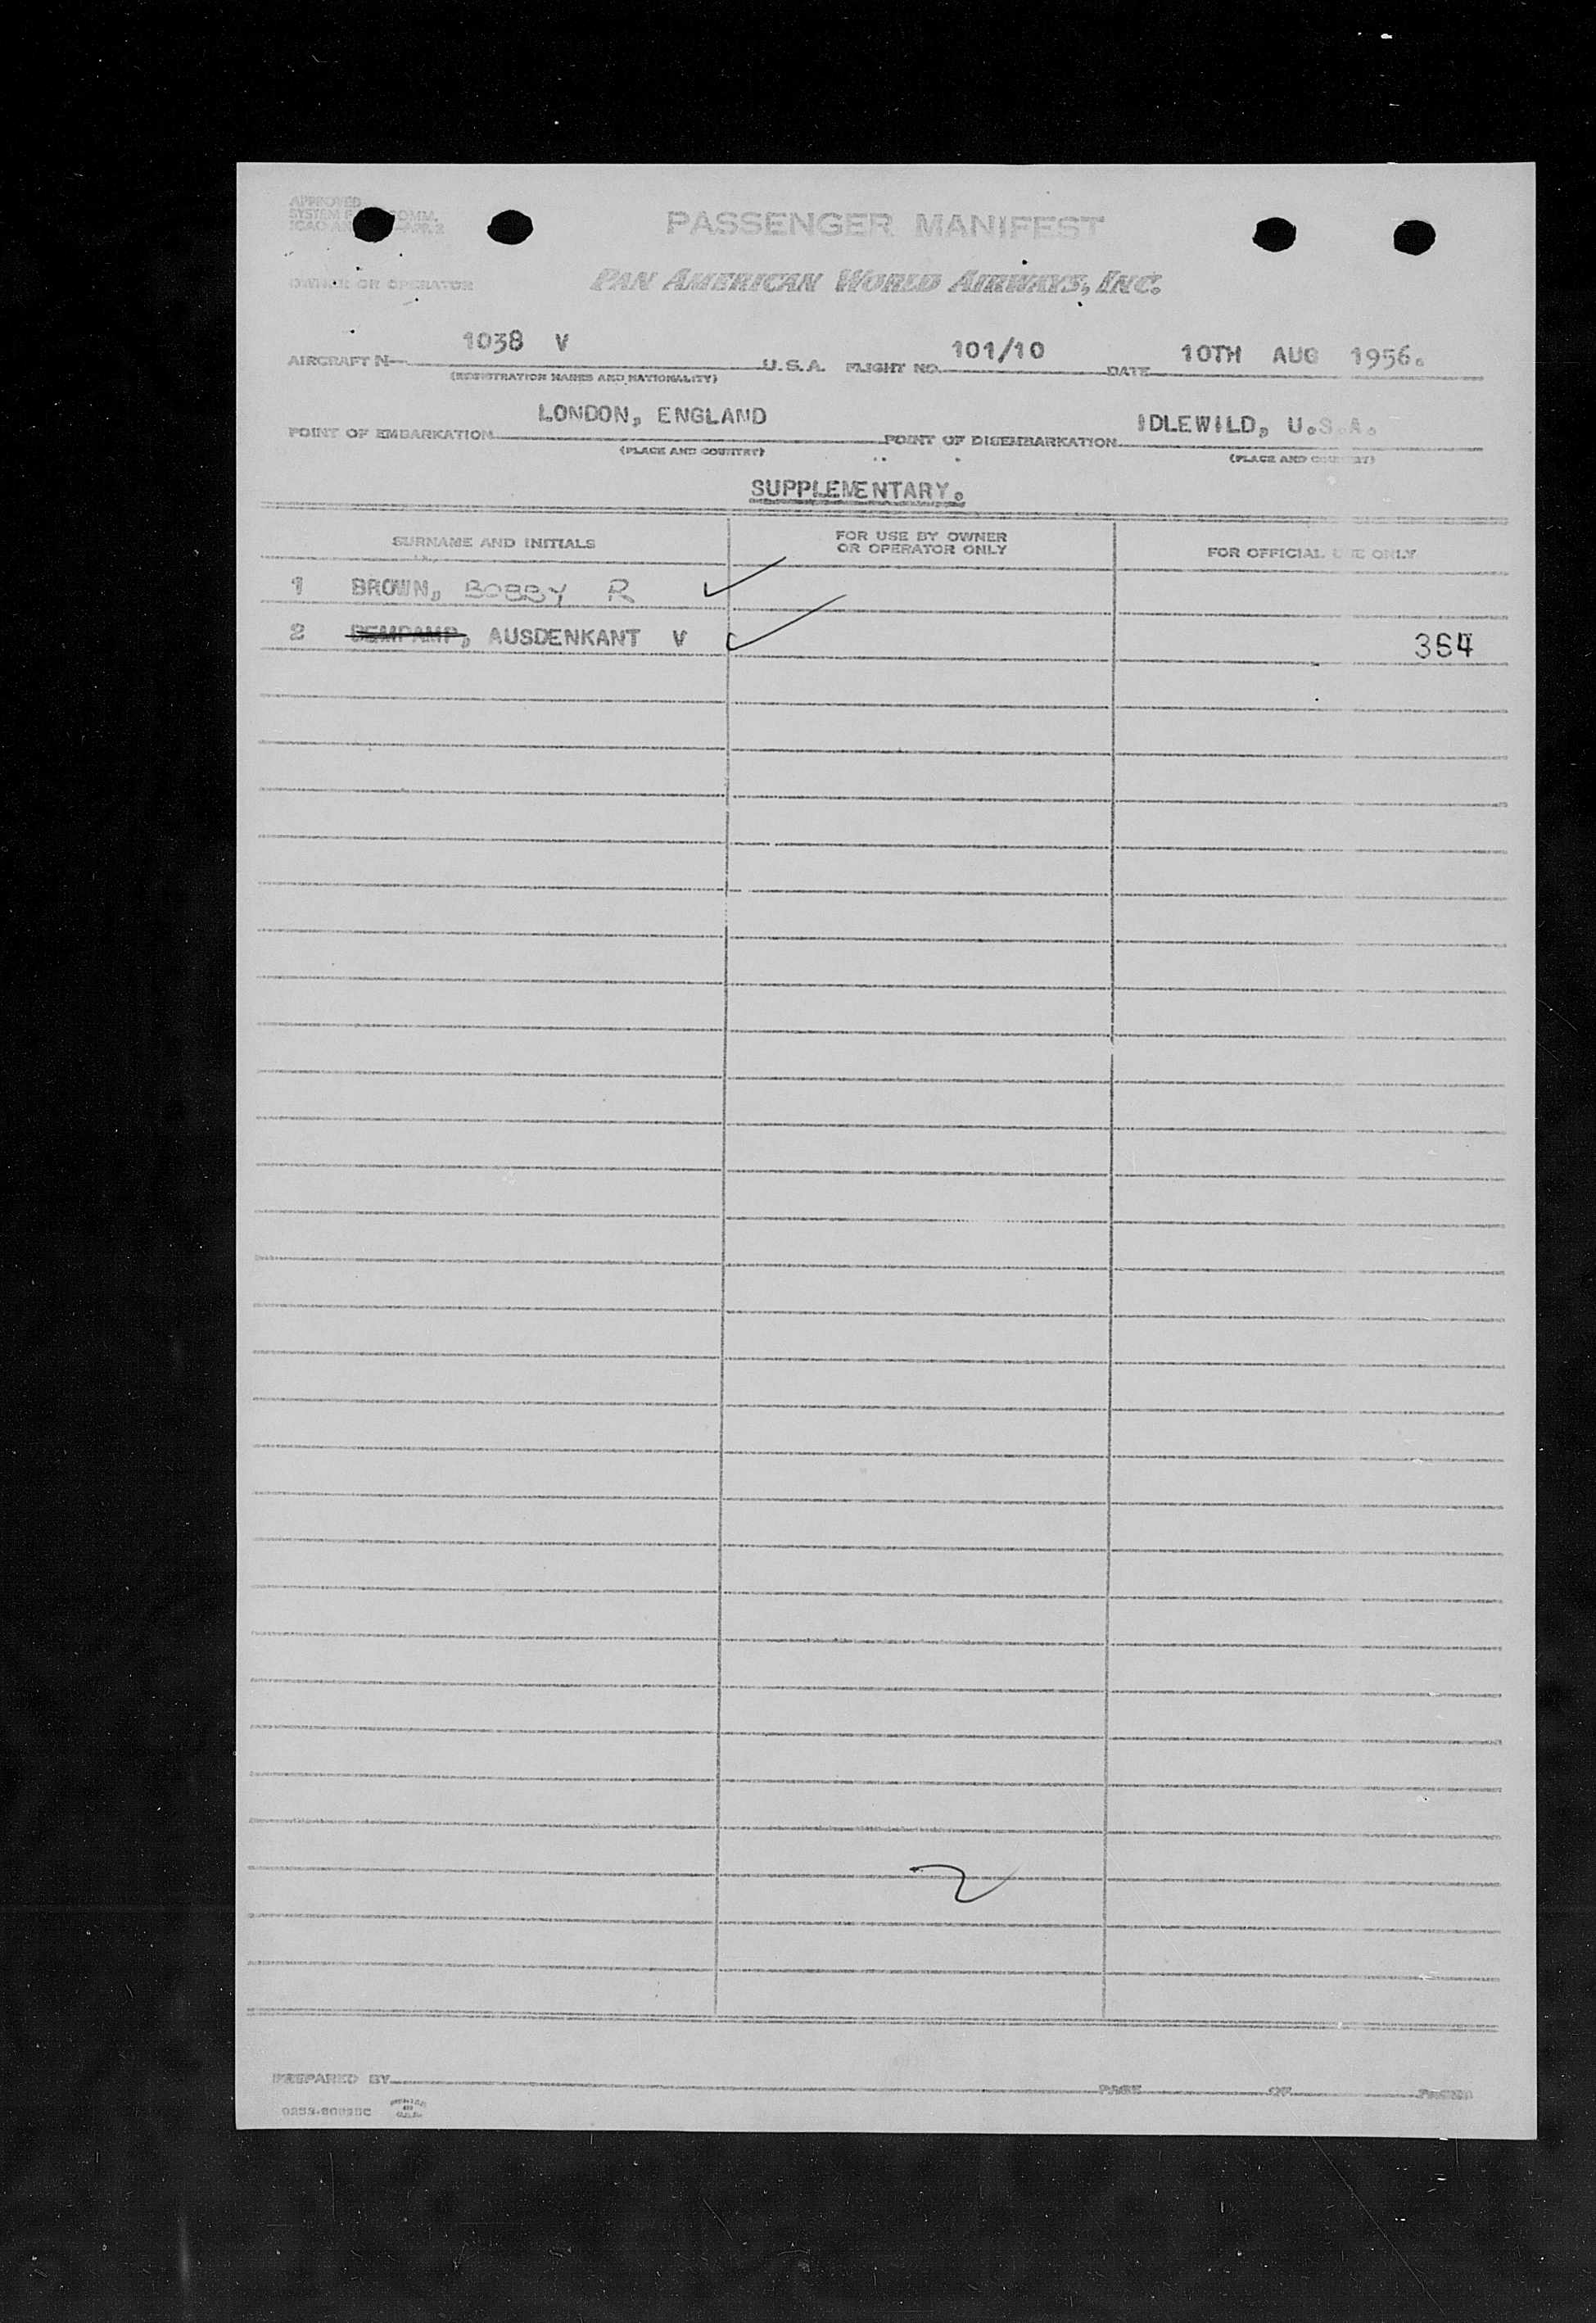 APPROVED
SYSTEM COMM.
ICAO
PASSENGER MANIFEST
OWNER OR OPERATOR PAN AMERICAN WORLD AIRWAYS, INC.
AIRCRAFT N- 1038 V U.S.A. FLIGHT NO. 101/10 DATE 10TH AUG 1956.
(REGISTRATION MARKS AND NATIONALITY)
POINT OF EMBARKATION LONDON, ENGLAND POINT OF DISEMBARKATION IDLEWILD, U.S.A.
(PLACE AND COUNTRY) (PLACE AND COUNTRY)
SUPPLEMENTARY.
SURNAME AND INITIALS FOR USE BY OWNER OR OPERATOR ONLY FOR OFFICIAL USE ONLY
1 BROWN, BOBBY R
2 AUSDENKANT V 364
2
PREPARED BY PAGE OF PAGES